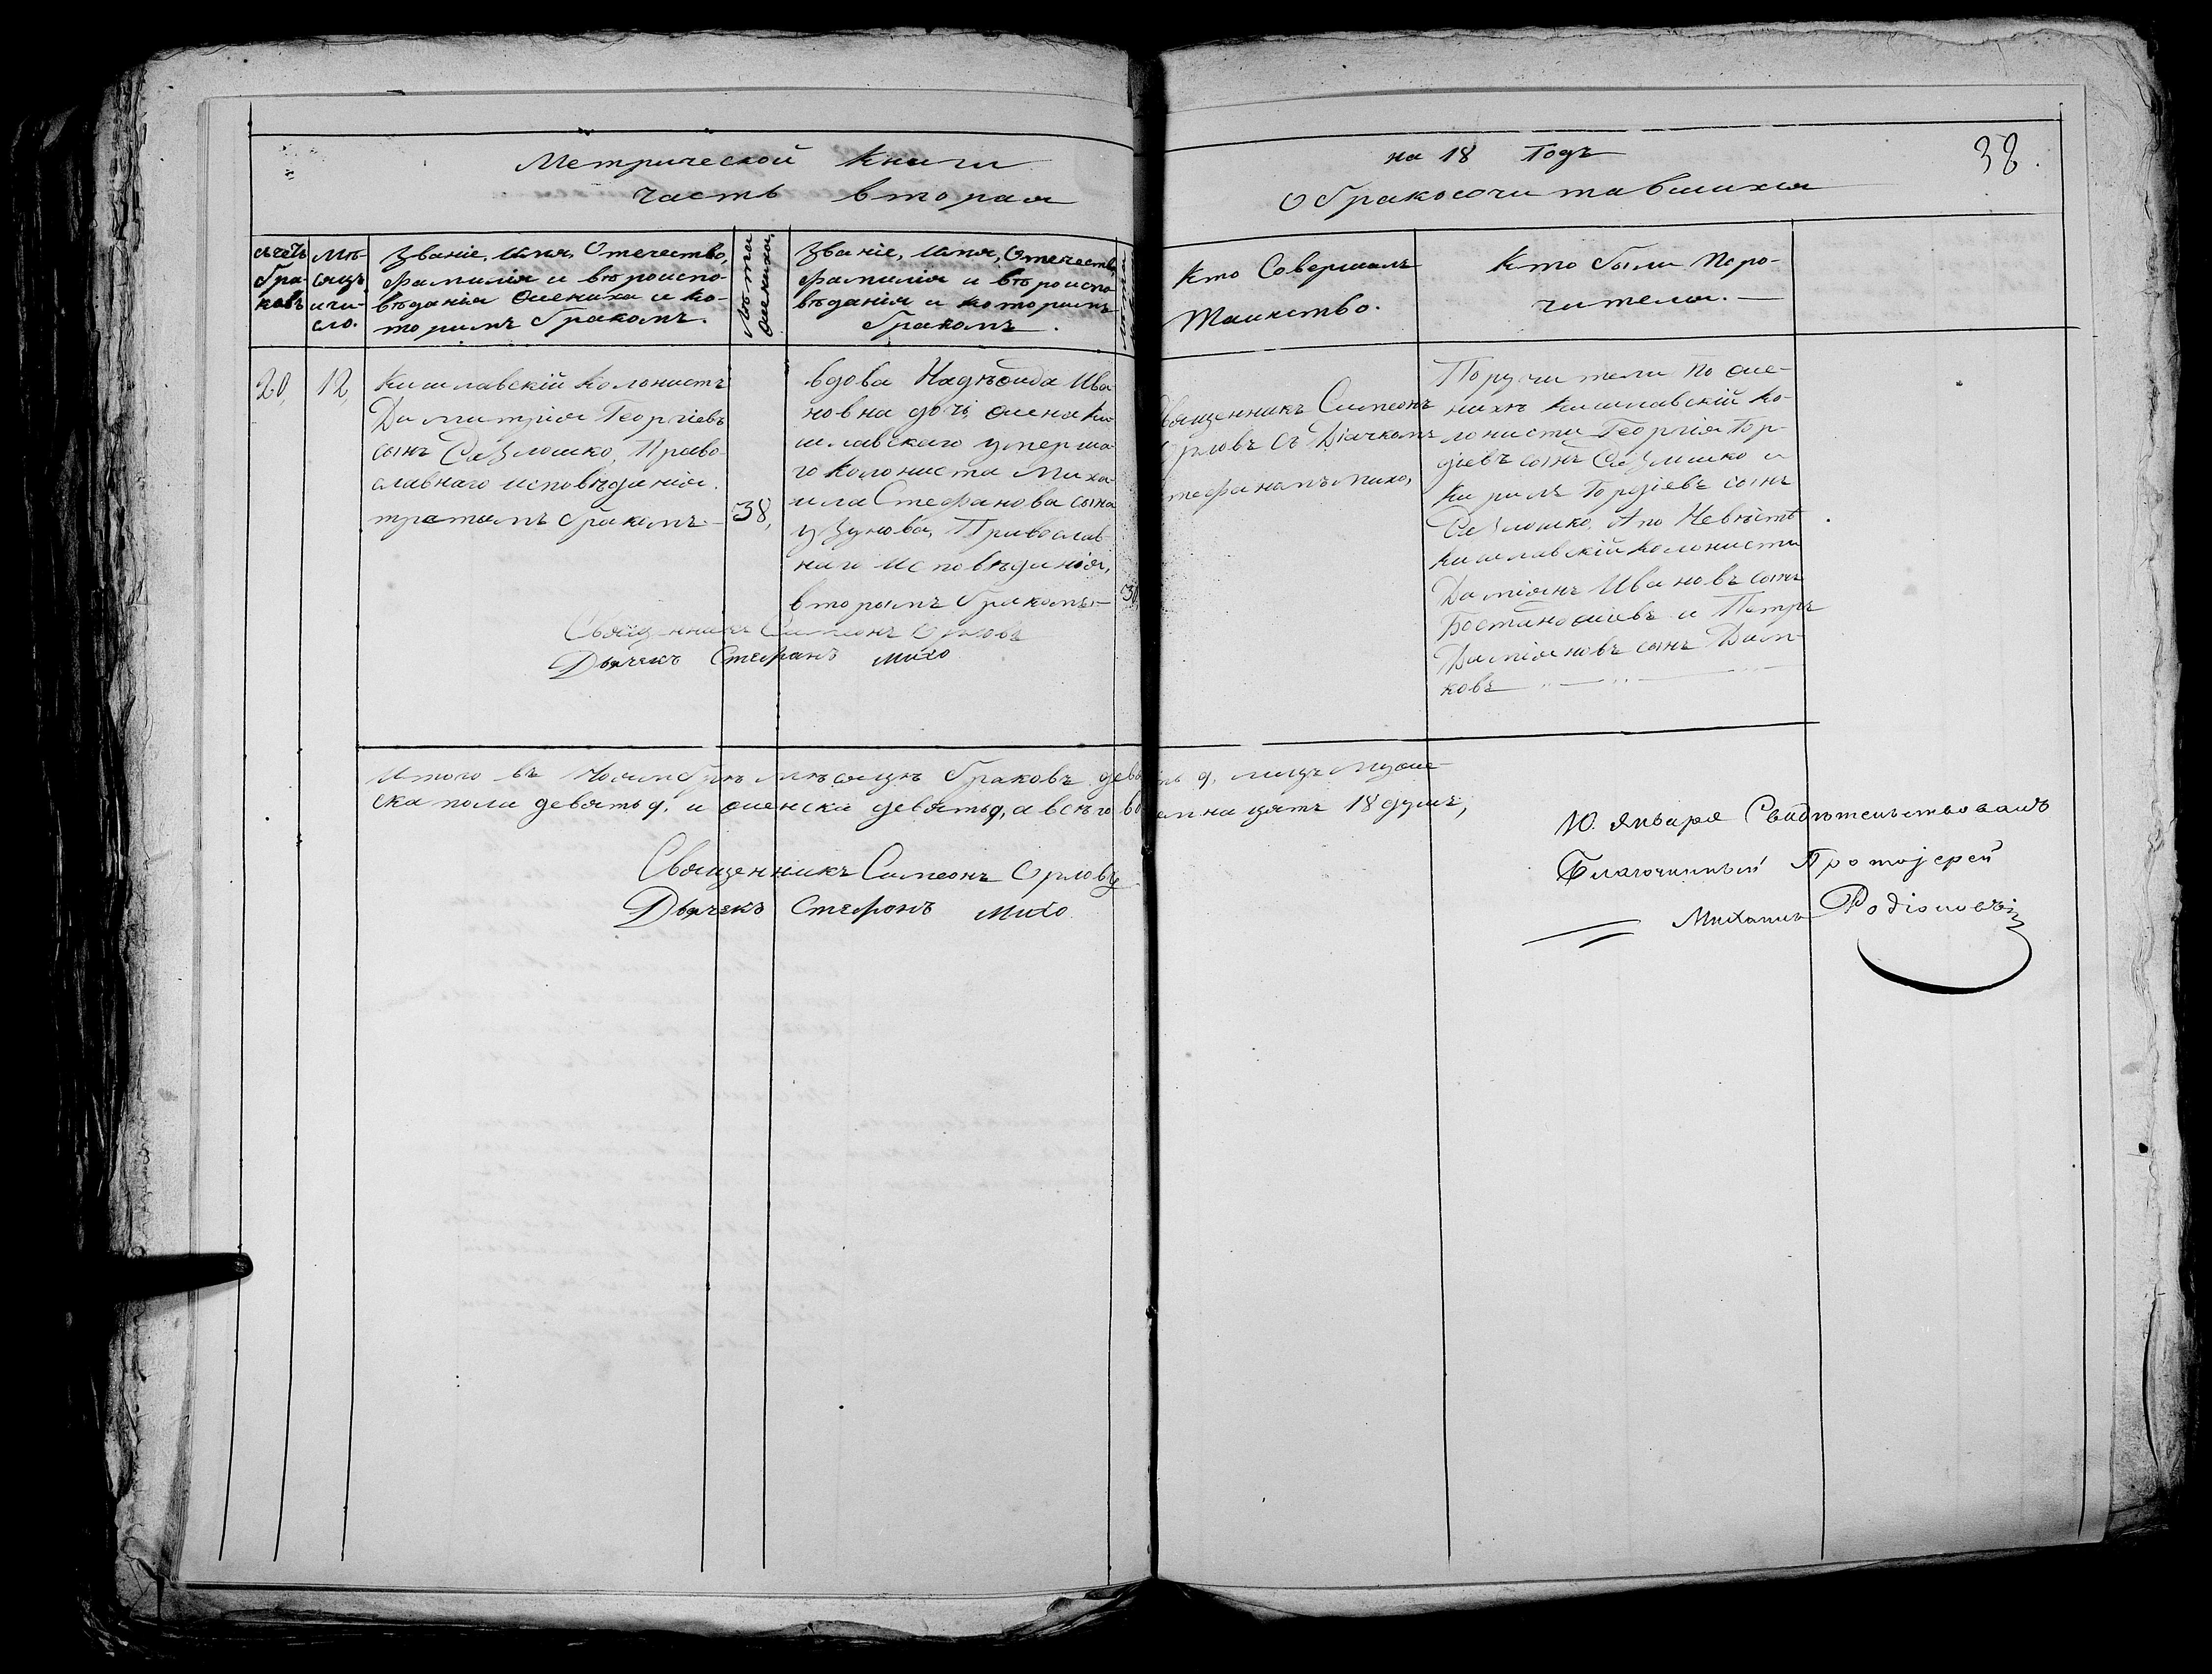 Метрической Книги
часть вторая
на 18 Годъ
О бракосочитавшихся
38.
счетъ
бра-
ковъ
Мѣ-
сяцъ
и чи-
сло.
Званіе, Имя, Отечество,
фамилія и вѣроиспо-
вѣданія жениха и ко-
торимъ бракомъ.
Лѣта
жениха.
Званіе, Имя, Отечество,
фамилія и вѣроиспо
вѣданія и которимъ
бракомъ.
лѣта
Кто Совершалъ
Таинство.
Кто были Пору-
чители.
20,
12,
Кишлавскій Колонистъ
Димитрія Георгіевъ
сынъ Сазлошко, Право
славнаго исповѣданія.
третимъ бракомъ.
38,
вдова Надѣжда Ива
новна дочь жена Ки
шлавскаго умерша-
го колониста Миха-
ила Стефанова сына
Узунова, Православ
наго Исповѣданія,
вторымъ бракомъ
30
Священникъ Симеонъ
Орловъ съ Діячкомъ
Стефаномъ михо,
Поручители по же-
нихѣ Кишлавскій Ко-
лонисти Георгія Гор-
діевъ сынъ Сазлошко и
Кирилъ Гордіевъ сынъ
Сазлошко. А по Невѣстѣ
Кишлавскій Колонисти
Даміянъ Ивановъ сынъ
Бостаножіевъ и Петръ
Даміяновъ сынъ Дим-
ковъ
Священникъ Симеонъ Орловъ
Дьячекъ Стефанъ михо
Итого въ Ноембрѣ мѣсяцѣ браковъ девять 9, лицъ муже-
ска поли девять 9, и женска девять 9, а всѣго восемнацять 18 душъ,
Священникъ Симеонъ Орловъ
Дьячекъ Стефанъ михо
10. Января Свидѣтельствовалъ
Благочинный Протоіерей
Михаилъ Родіоновъ